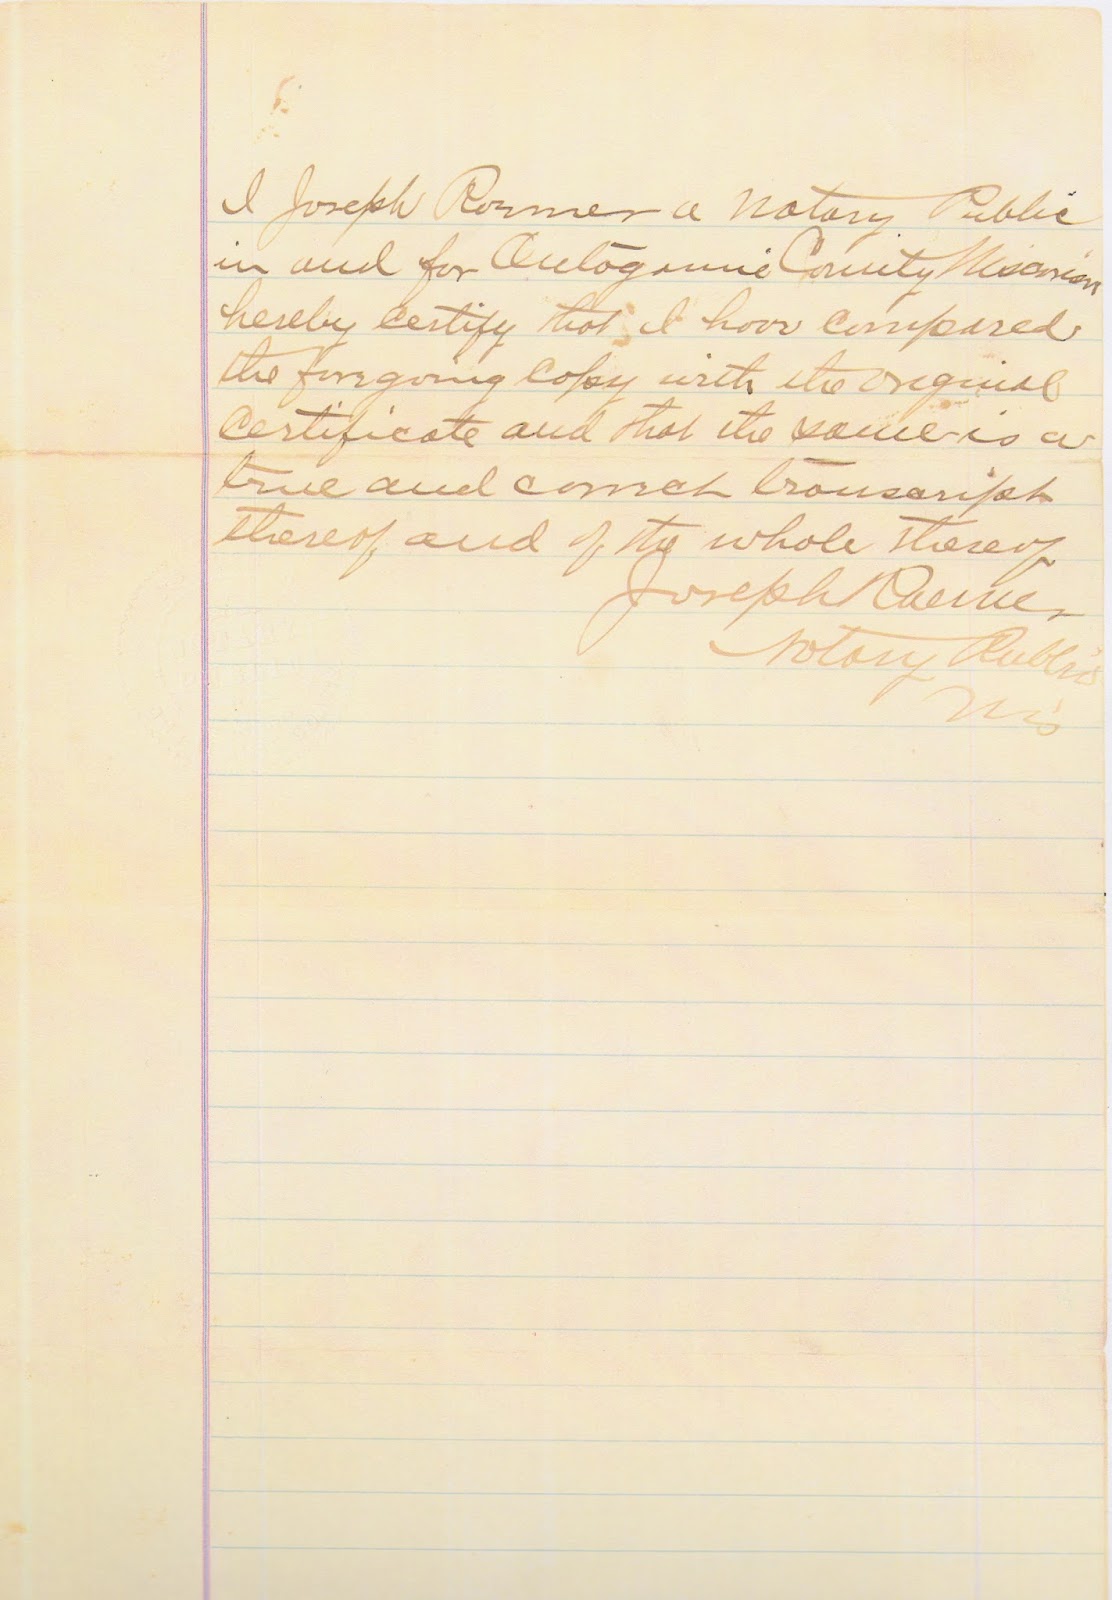 I Joseph Roemer a Notary Public
in and for Outagamie County Wisconsin
hereby certify that I have compared
the foregoing copy with the original
certificate and that the same is a
true and correct transcript
thereof, and of the whole thereof
Joseph Roemer
Notary Public
Wis